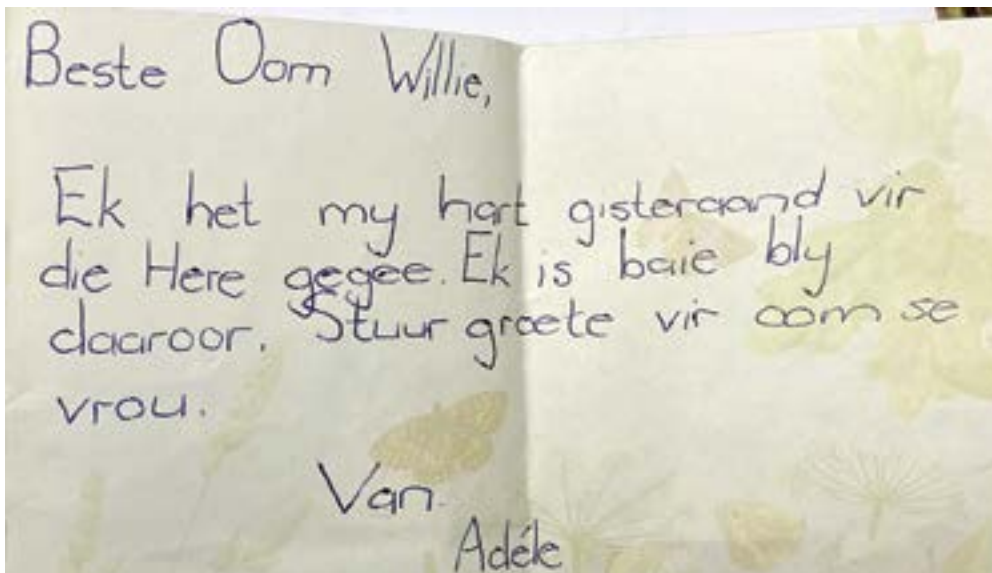 Beste Oom Willie,
Ek het my hart gisteraand vir
die Here gegee. Ek is baie bly
daaroor. Stuur groete vir oom se
vrou.
Van
Adéle